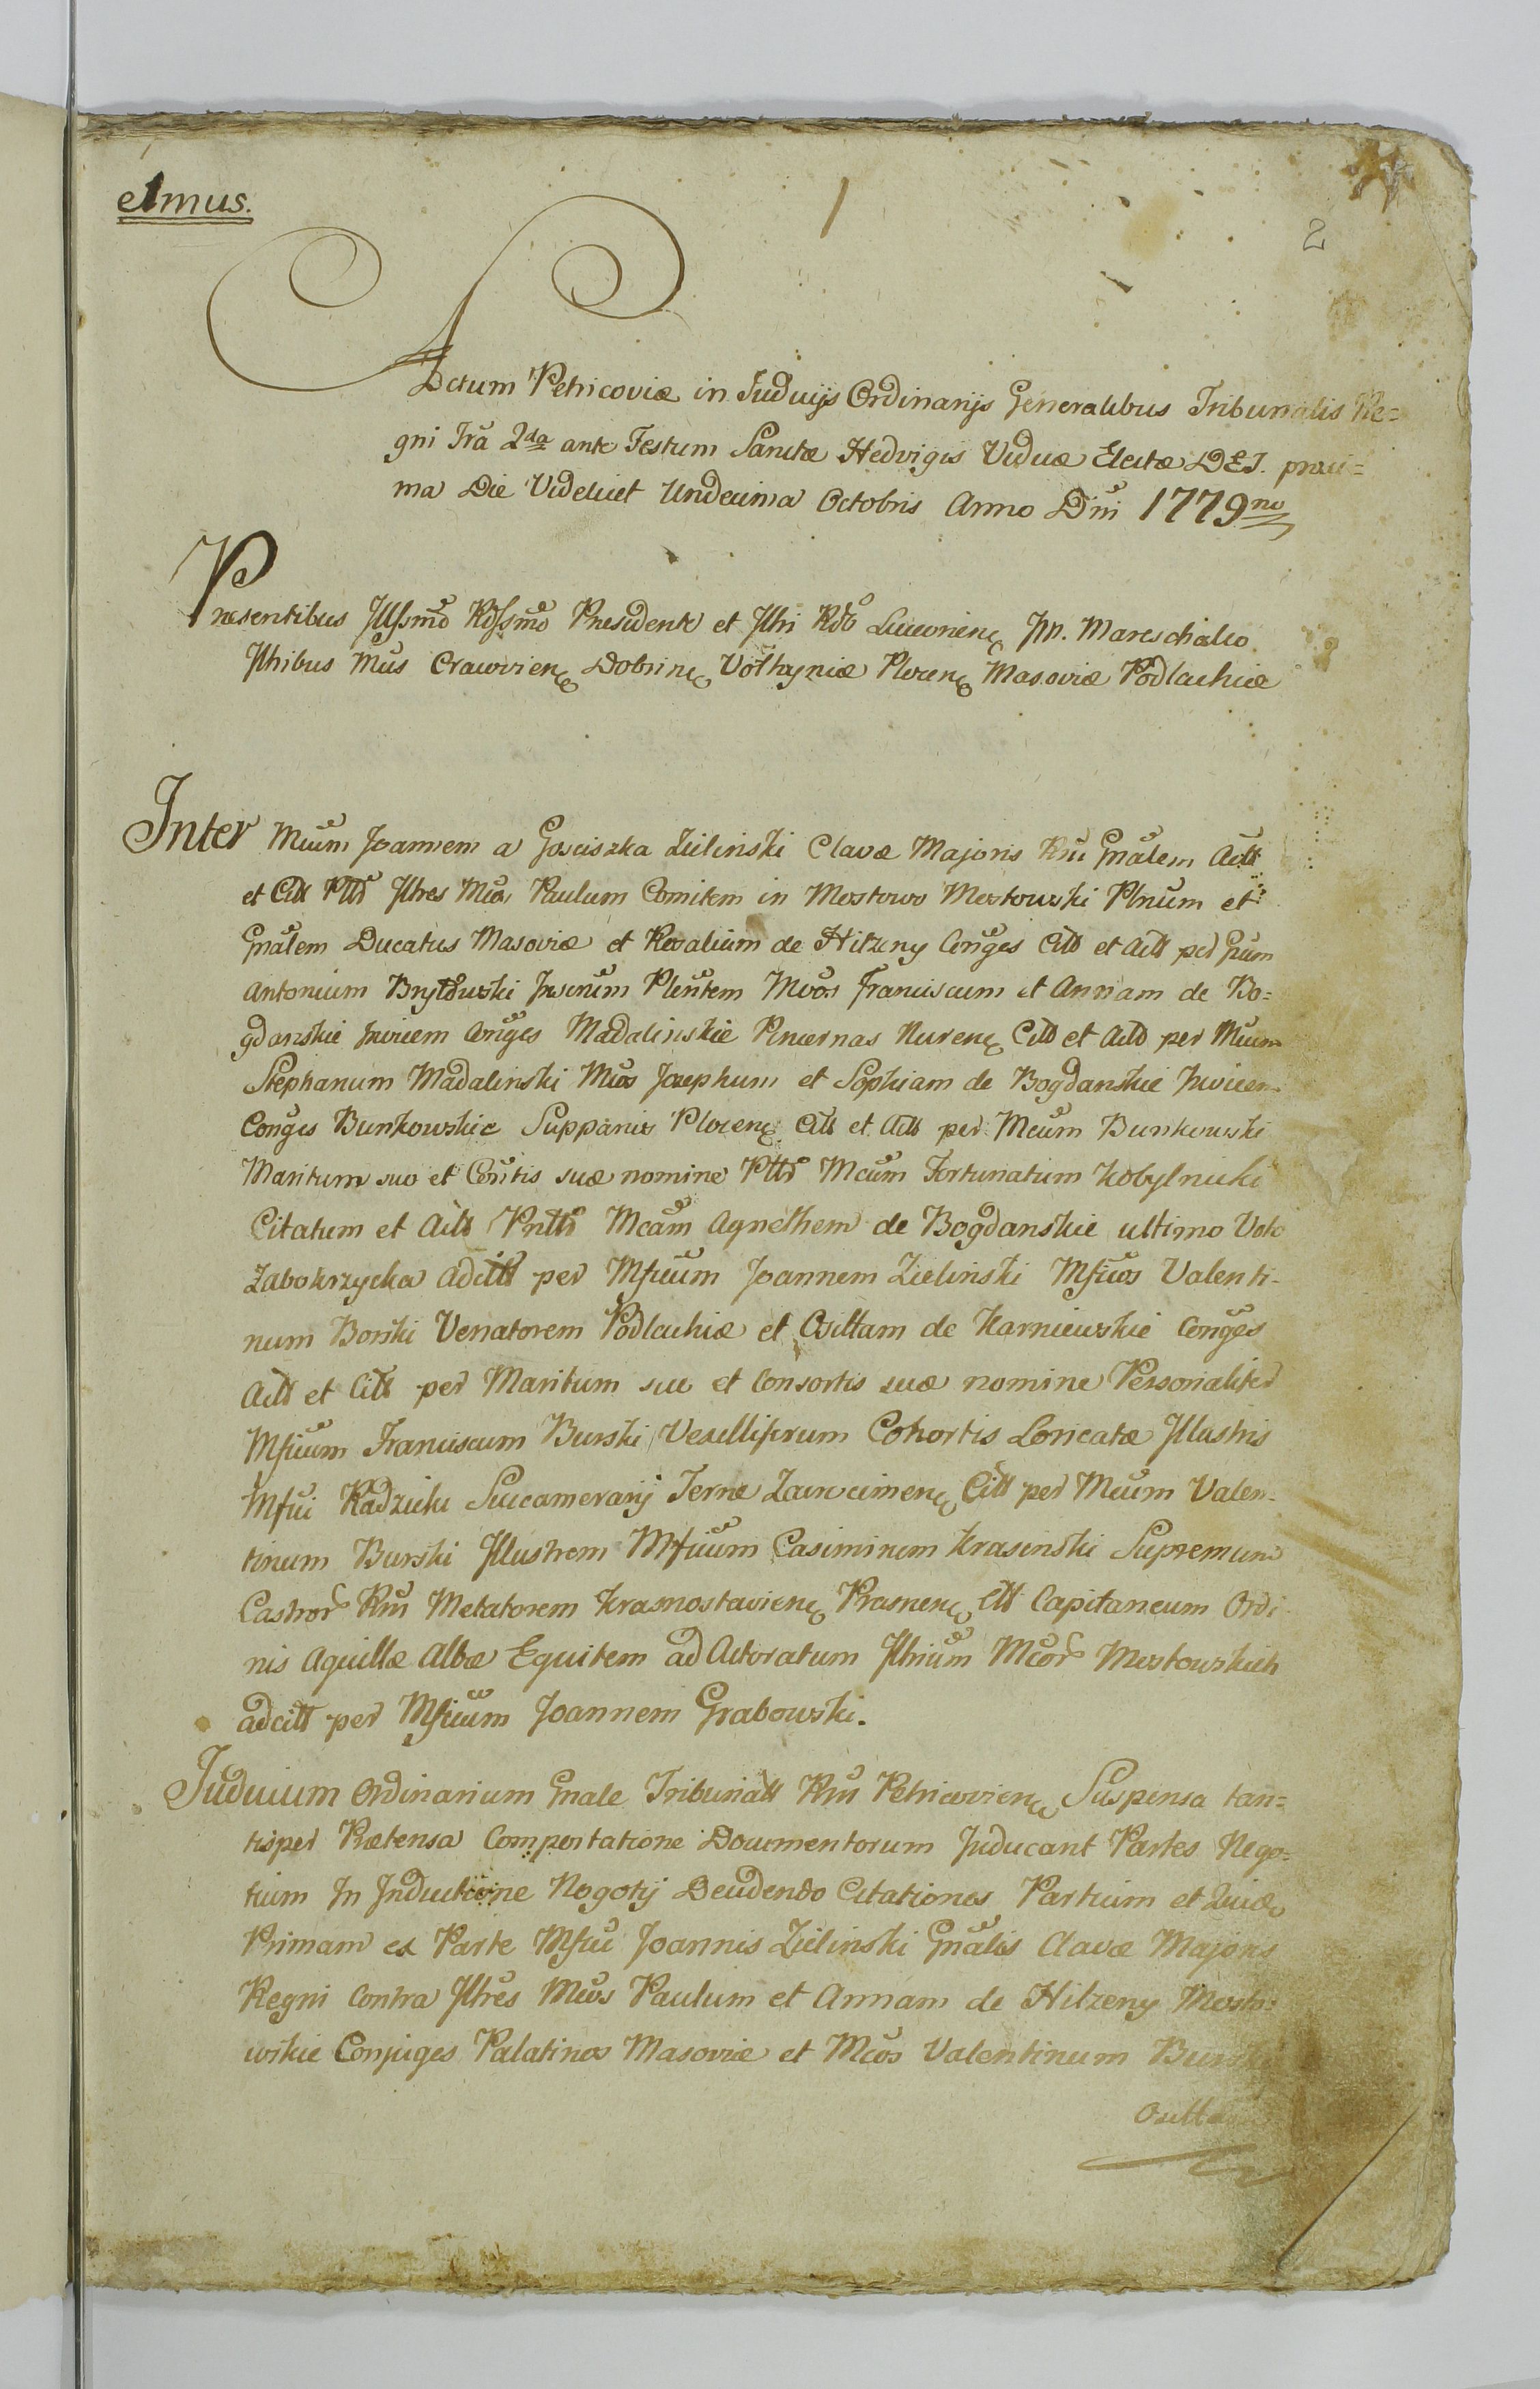 elmus.
1
2
Actum Petricoviæ in Judicijs Ordinarijs Generalibus Tribunalis Re=
gni Frã 2da ante Festum Sanctæ Hedvigis Viduæ Electæ DEJ. proxi=
ma Die Videlicet Undecima Octobris Anno Dni 1779no
Præsentibus Jllssmo Rdssmo Præsidente et Jllri Rdo Luceorien, Jn. Mareschalco
Jllribus Mcis Cracovien, Dobrin, Volhyniæ Plocen, Masoviæ Podlachiæ
Inter Mcum Joannem a Gosciszka Zielinski Clavæ Majoris Rni Gnalem Actt
et Citt Ptt Jllres Mcos Paulum Comitem in Mostowo Mostowski Plnum et
Gnalem Ducatus Masoviæ et Rosaliam de Hilzeny Conges Citt et Actt per Gum
Antonium Bryldwski Plentem Mcos Franciscum et Annam de Bo=
gdanskie Invicem Conges Madalinskie Pincernas Nuren, Citt et Actt per Mcum
Stephanum Madalinski Mcos Josephum et Sophiam de Bogdanskie Invicem
Conges Bunkowskie Suppanis Plocen, Citt et Actt per Mcum Bunkowski
Maritum suo et Contis suæ nomine Ptt Mcum Fortunatum Kobylnicki
Citatum et Actt Mcam Agnethem de Bogdanskie ultimo Voto
Zabokrzycka adcitt per Mficum Joannem Zielinski Mficos Valenti-
num Borski Venatorem Podlachiæ et Osittam de Karniewskie Conges
Actt et Citt per Maritum suo et Consortis suæ nomine Personaliter
Mficum Franciscum Burski Vexilliferum Cohortis Loricatæ Jllustris
Mfici Radzicki Succamerarij Terræ Zawcrimen, Citt per Mcum Valen-
tinum Burski Jllustrem Mficum Casimirum Krasinski Supremum
Castror Rni Metatorem Krasnostavien, Prasnen, Ett Capitaneum Ordi-
nis Aquillæ Albæ Equitem ad Actoratum Jllrium Mcor Mostowskich
adcitt per Mficum Joannem Grabowski.
Judicium Ordinarium Gnale Tribunatt Rni Petricovien, Suspensa tan=
tisper Prætensa Comportatione Documentorum Inducant Partes Nego=
tium In Inductione Negotij Deudendo Citationes Partium et
Primam ex Parte Mfici Joannis Zielinski Gnalis Clavæ Majoris
Regni Contra Jllres Mcos Paulum et Annam de Hilzeny Mosto=
wskie Conjuges Palatinos Masoviæ et Mcos Valentinum Burski
Osittam